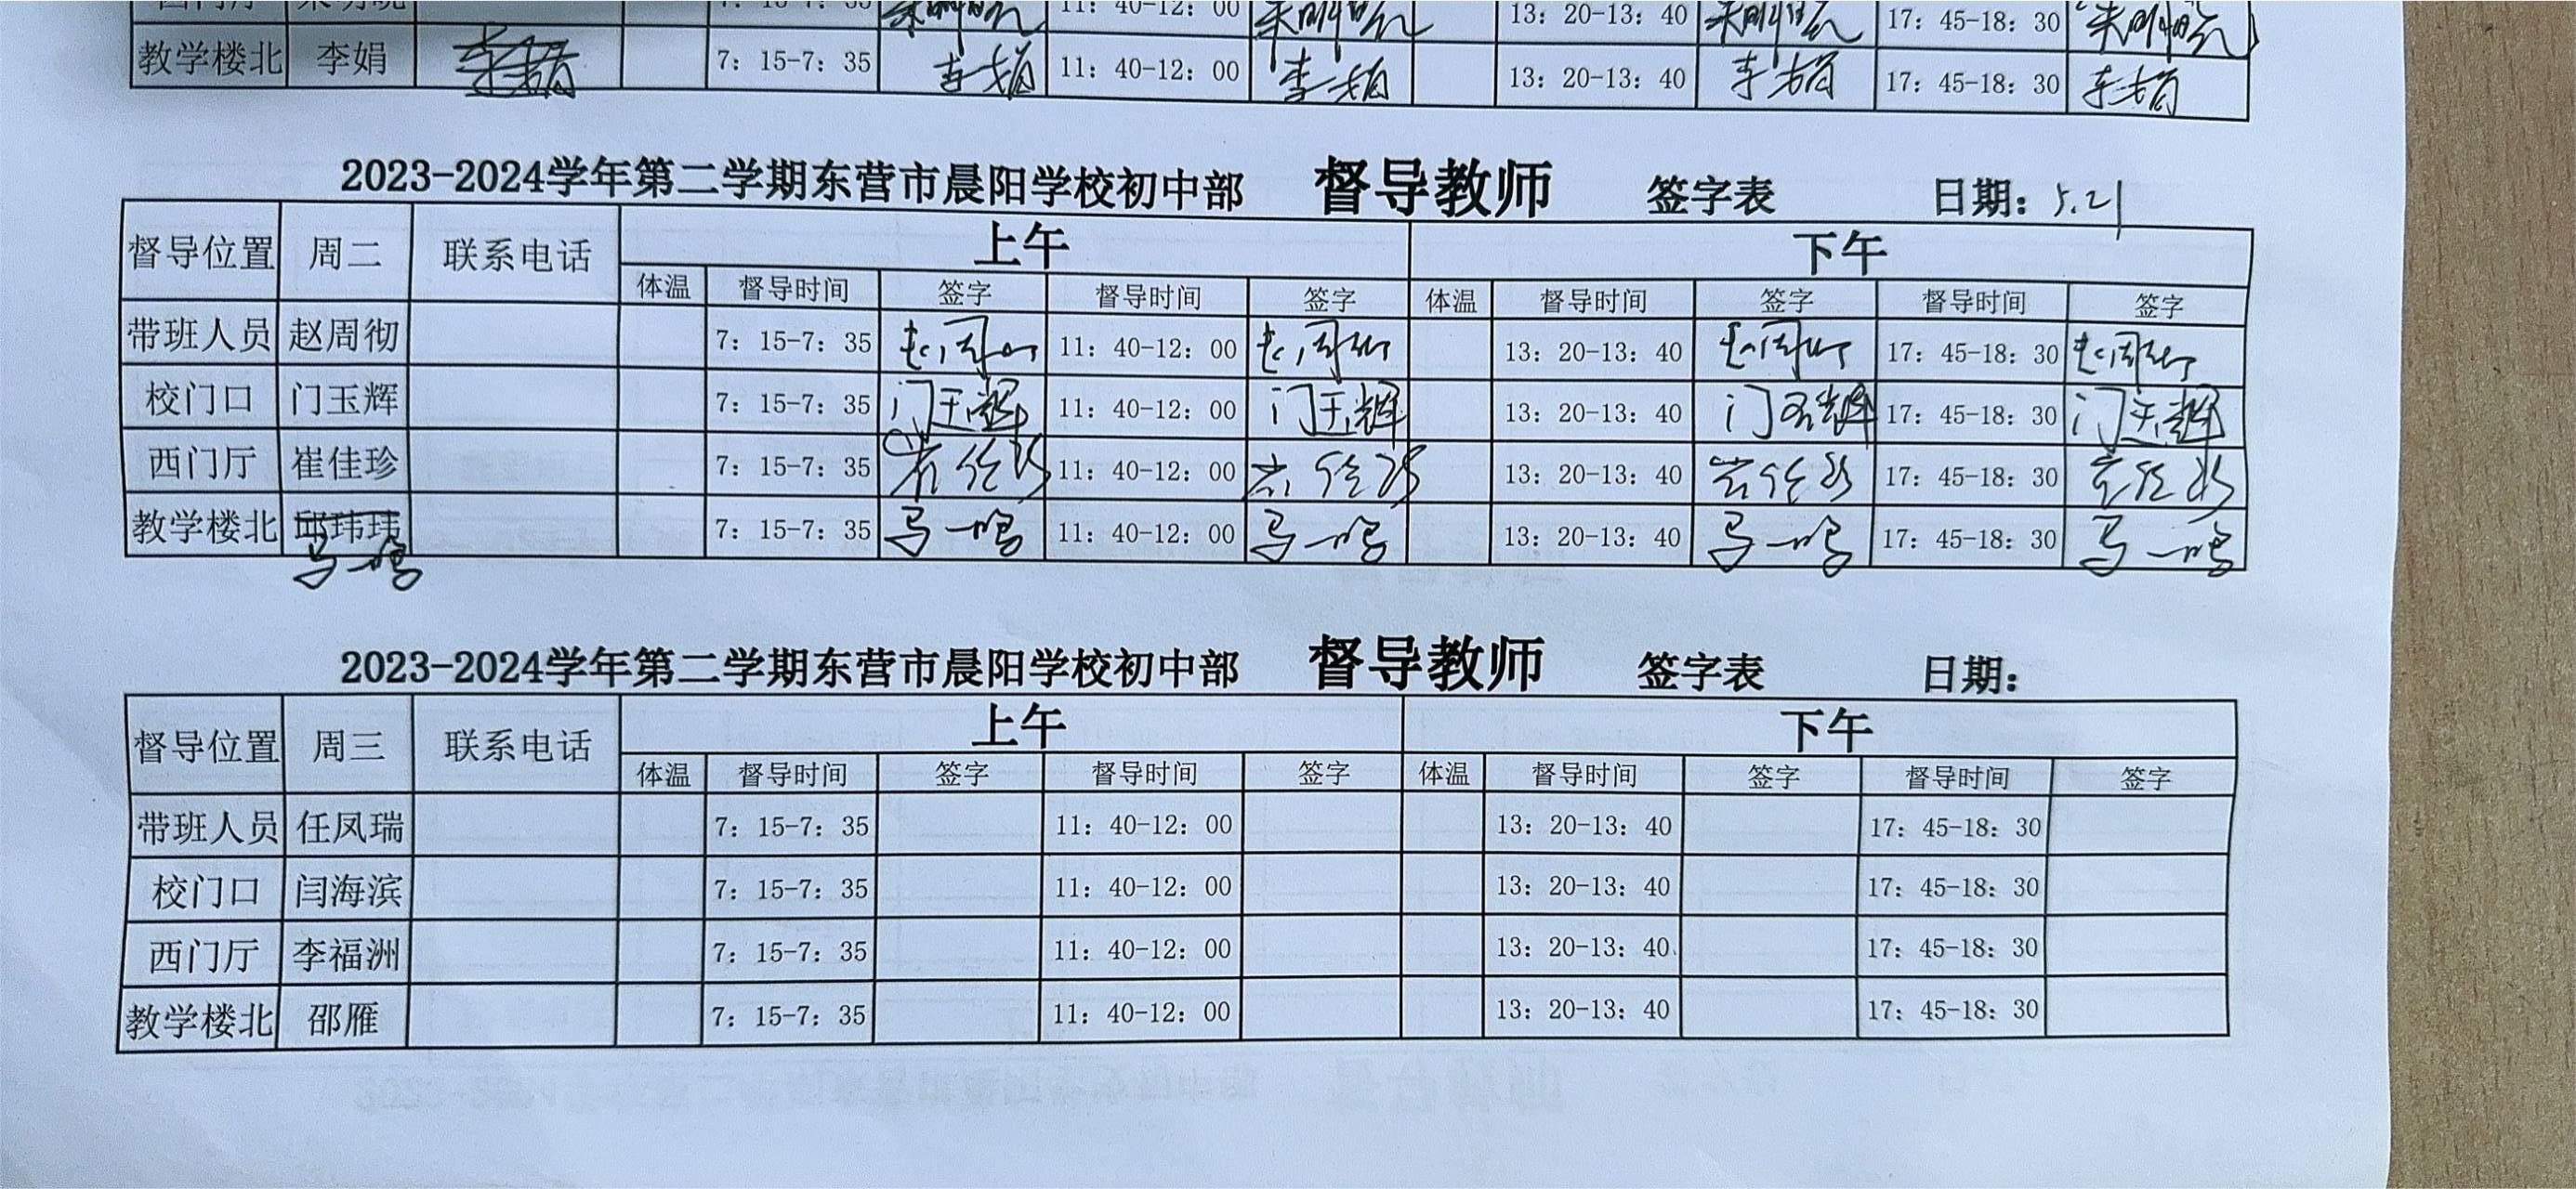 7: 15-7: 35 朱明晓 11: 40-12: 00 朱明晓 13: 20-13: 40 朱明晓 17: 45-18: 30 朱明晓
教学楼北 李娟 7: 15-7: 35 李娟 11: 40-12: 00 李娟 13: 20-13: 40 李娟 17: 45-18: 30 李娟
2023-2024学年第二学期东营市晨阳学校初中部 督导教师 签字表 日期: 5.21
督导位置 周二 联系电话 上午 下午
体温 督导时间 签字 督导时间 签字 体温 督导时间 签字 督导时间 签字
带班人员 赵周彻 7: 15-7: 35 赵周彻 11: 40-12: 00 赵周彻 13: 20-13: 40 赵周彻 17: 45-18: 30 赵周彻
校门口 门玉辉 7: 15-7: 35 门玉辉 11: 40-12: 00 门玉辉 13: 20-13: 40 门玉辉 17: 45-18: 30 门玉辉
西门厅 崔佳珍 7: 15-7: 35 崔佳珍 11: 40-12: 00 崔佳珍 13: 20-13: 40 崔佳珍 17: 45-18: 30 崔佳珍
教学楼北 邱玮玮 7: 15-7: 35 马一鸣 11: 40-12: 00 马一鸣 13: 20-13: 40 马一鸣 17: 45-18: 30 马一鸣
马一鸣
2023-2024学年第二学期东营市晨阳学校初中部 督导教师 签字表 日期:
督导位置 周三 联系电话 上午 下午
体温 督导时间 签字 督导时间 签字 体温 督导时间 签字 督导时间 签字
带班人员 任凤瑞 7: 15-7: 35 11: 40-12: 00 13: 20-13: 40 17: 45-18: 30
校门口 闫海滨 7: 15-7: 35 11: 40-12: 00 13: 20-13: 40 17: 45-18: 30
西门厅 李福洲 7: 15-7: 35 11: 40-12: 00 13: 20-13: 40 17: 45-18: 30
教学楼北 邵雁 7: 15-7: 35 11: 40-12: 00 13: 20-13: 40 17: 45-18: 30